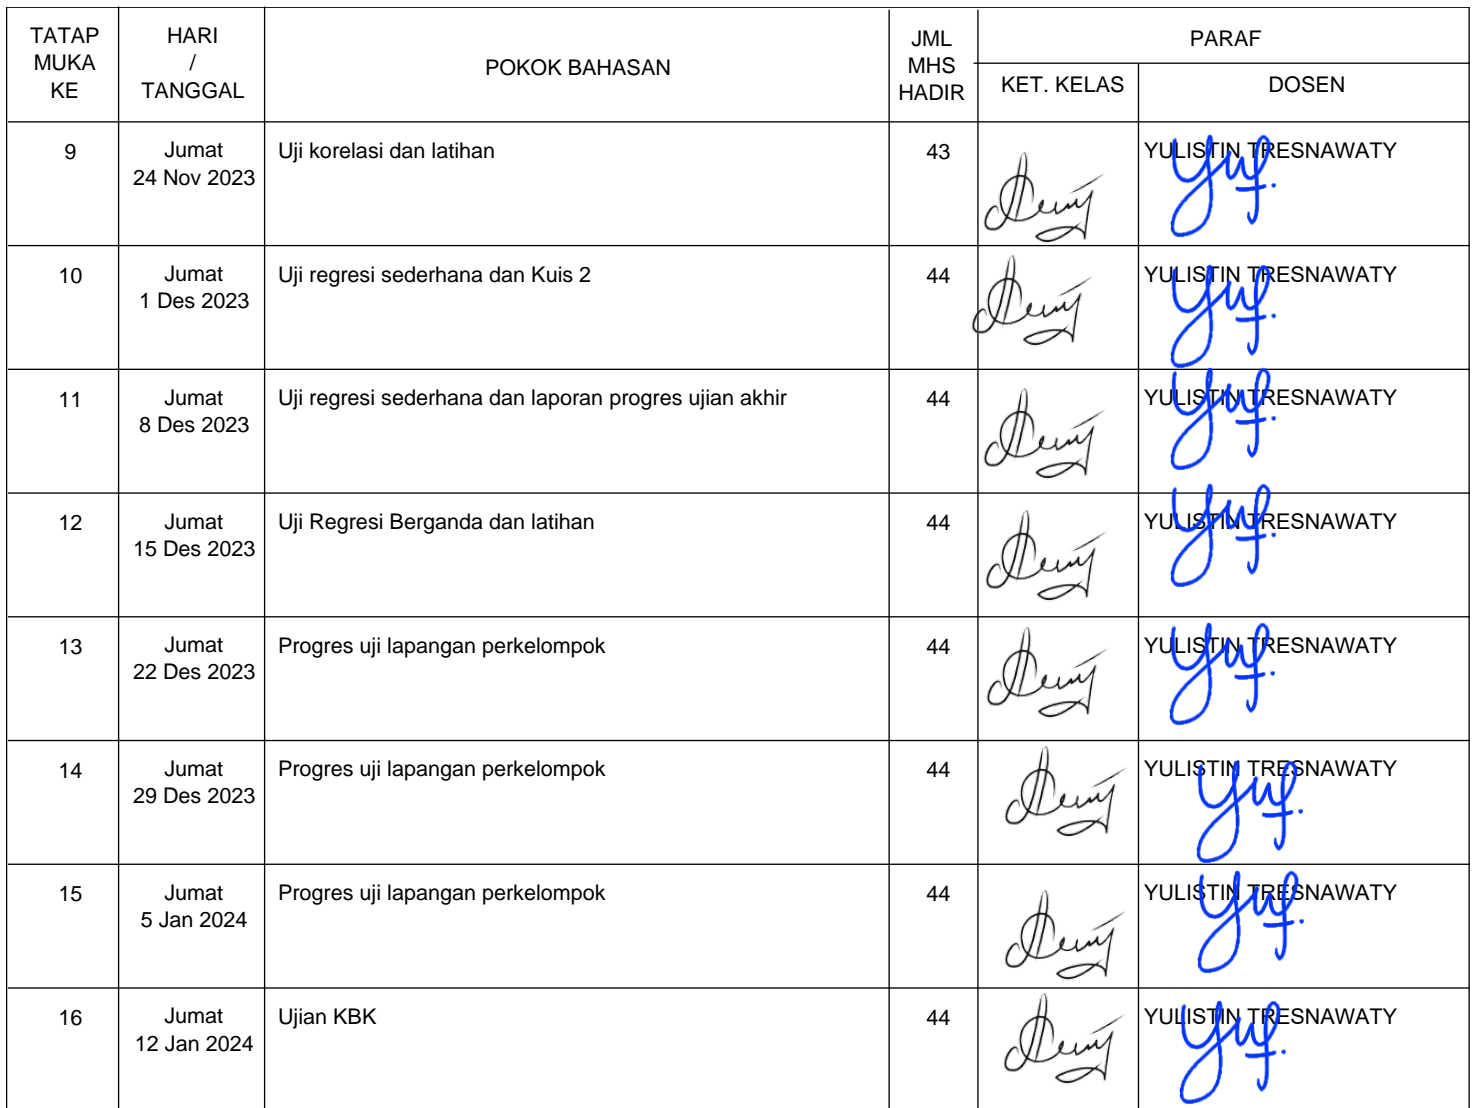 TATAP
MUKA
KE
HARI
/
TANGGAL
POKOK BAHASAN
JML
MHS
HADIR
PARAF
KET. KELAS
DOSEN
9
Jumat
24 Nov 2023
Uji korelasi dan latihan
43
YULISTIN TRESNAWATY
10
Jumat
1 Des 2023
Uji regresi sederhana dan Kuis 2
44
YULISTIN TRESNAWATY
11
Jumat
8 Des 2023
Uji regresi sederhana dan laporan progres ujian akhir
44
YULISTIN TRESNAWATY
12
Jumat
15 Des 2023
Uji Regresi Berganda dan latihan
44
YULISTIN TRESNAWATY
13
Jumat
22 Des 2023
Progres uji lapangan perkelompok
44
YULISTIN TRESNAWATY
14
Jumat
29 Des 2023
Progres uji lapangan perkelompok
44
YULISTIN TRESNAWATY
15
Jumat
5 Jan 2024
Progres uji lapangan perkelompok
44
YULISTIN TRESNAWATY
16
Jumat
12 Jan 2024
Ujian KBK
44
YULISTIN TRESNAWATY